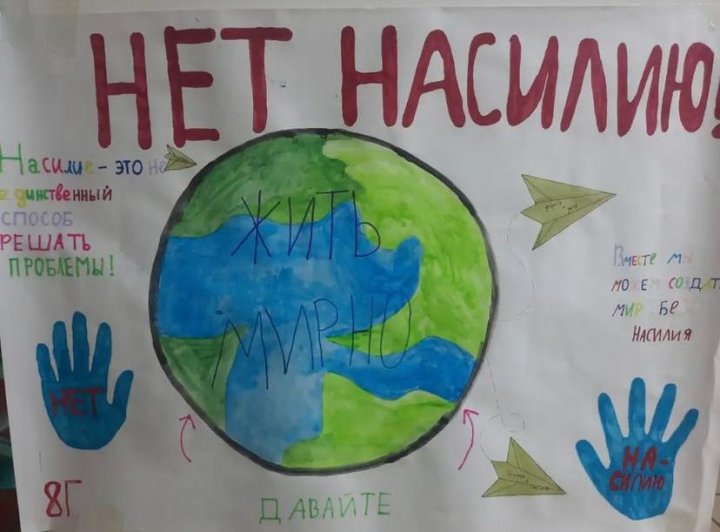 НЕТ НАСИЛИЮ!
Насилие - это не
единственный
способ
РЕШАТЬ
ПРОБЛЕМЫ!
ЖИТЬ
МИРНО
Вместе мы
можем создать
мир без
НАСИЛИЯ
НЕТ
НА-
СИЛИЮ
8Г
ДАВАЙТЕ